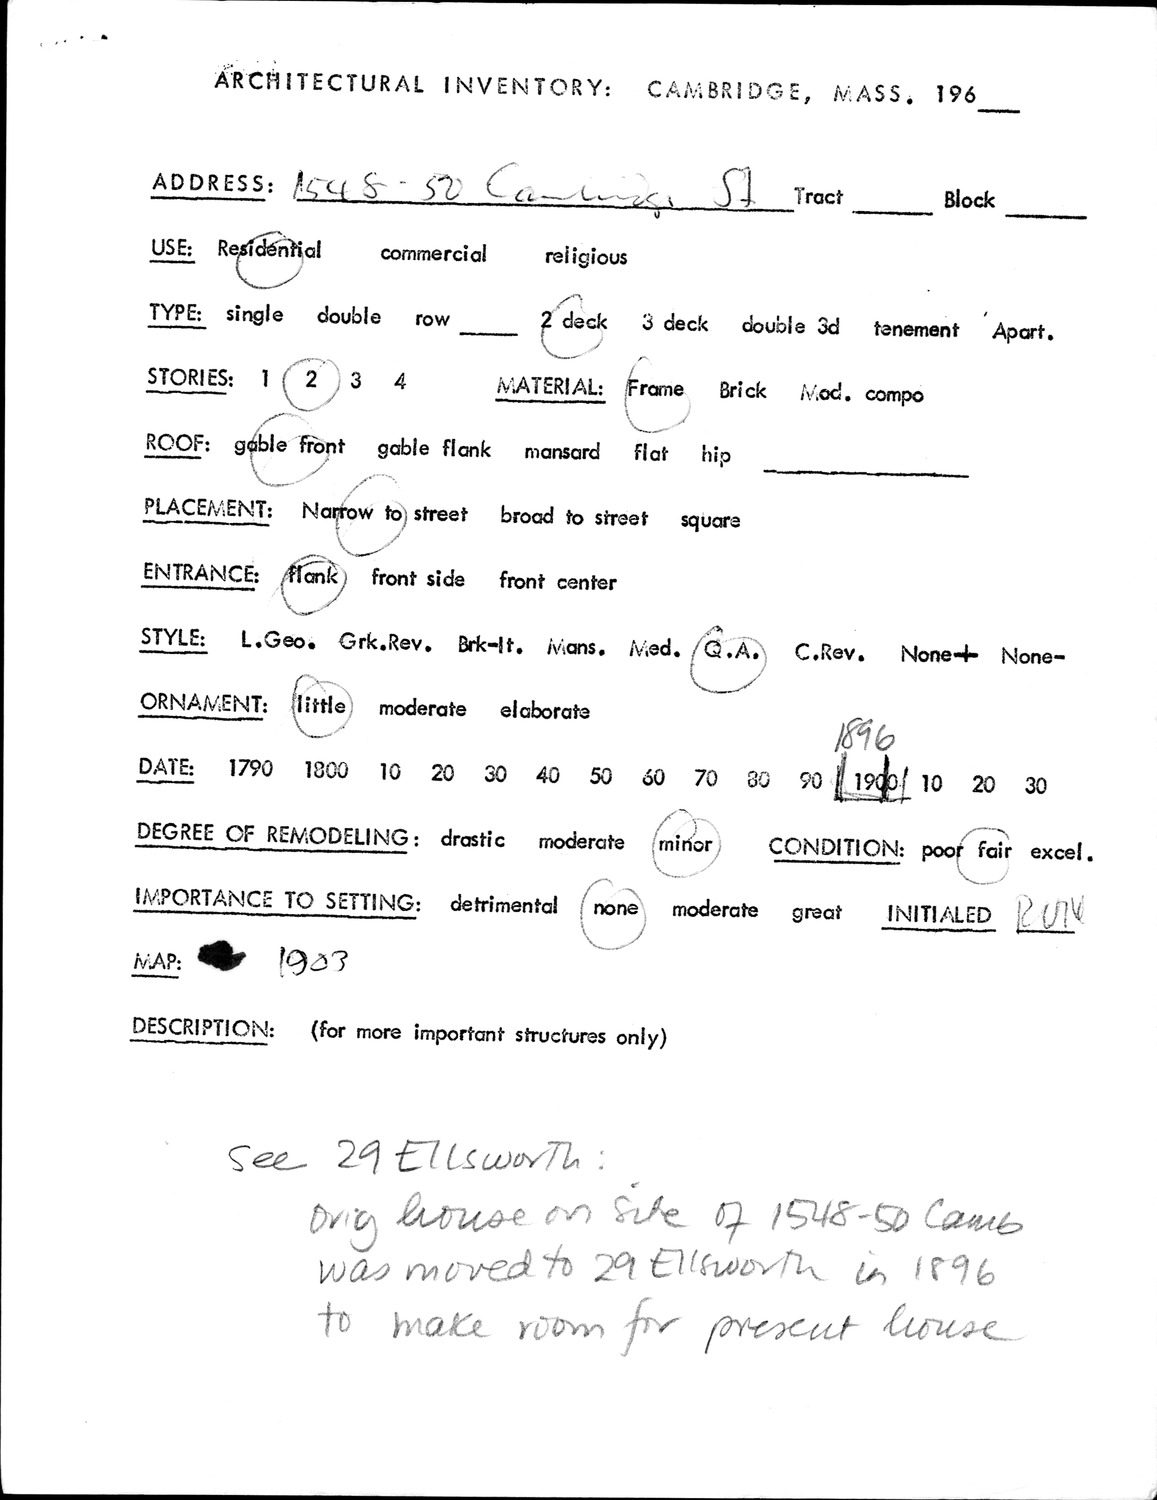 ARCHITECTURAL INVENTORY: CAMBRIDGE, MASS. 196___
ADDRESS: 1548-50 Cambridge St Tract ______ Block ______
USE: Residential commercial religious
TYPE: single double row ____ 2 deck 3 deck double 3d tenement Apart.
STORIES: 1 2 3 4 MATERIAL: Frame Brick Mod. compo
ROOF: gable front gable flank mansard flat hip ____________
PLACEMENT: Narrow to street broad to street square
ENTRANCE: flank front side front center
STYLE: L.Geo. Grk.Rev. Brk-It. Mans. Med. Q.A. C.Rev. None+ None-
ORNAMENT: little moderate elaborate
1896
DATE: 1790 1800 10 20 30 40 50 60 70 80 90 1900 10 20 30
DEGREE OF REMODELING: drastic moderate minor CONDITION: poor fair excel.
IMPORTANCE TO SETTING: detrimental none moderate great INITIALED
MAP: 1903
DESCRIPTION: (for more important structures only)
See 29 Ellsworth:
orig house on site of 1548-50 Camb
was moved to 29 Ellsworth in 1896
to make room for present house